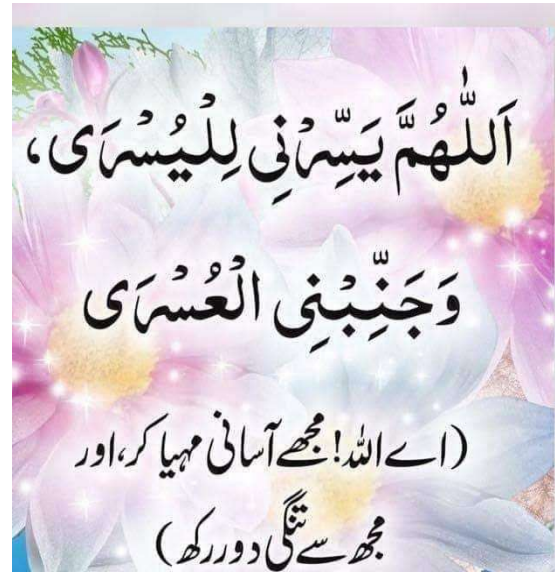 اَللّٰهُمَّ يَسِّرْنِي لِلْيُسْرَى،
وَجَنِّبْنِي الْعُسْرَى
(اے اللہ! مجھے آسانی مہیا کر، اور
مجھ سے تنگی دور رکھ)